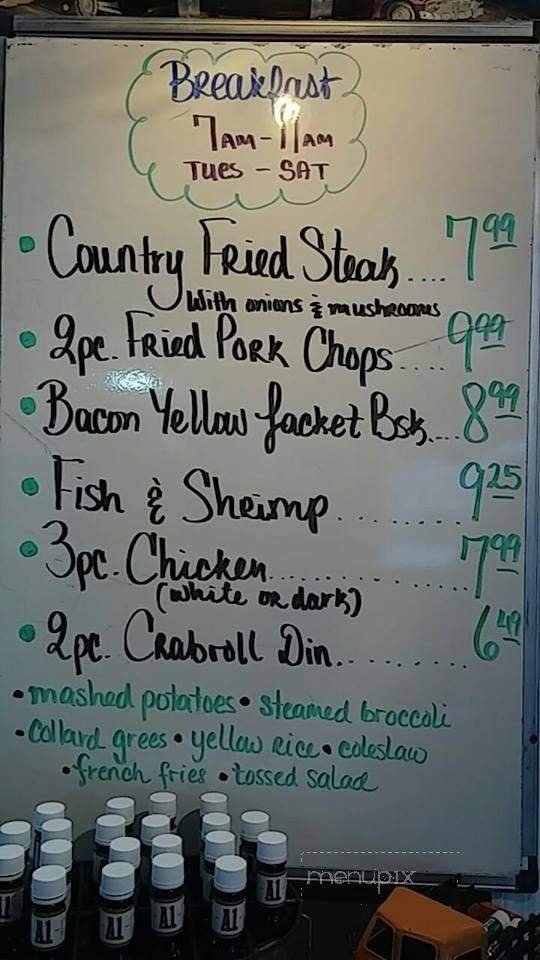 Breakfast
7AM - 11AM
Tues - SAT
• Country Fried Steak.... 7 99
With onions & mushrooms
• 2pc. Fried Pork Chops.... 9 99
• Bacon Yellow Jacket Bsk.... 8 99
• Fish & Shrimp........ 9 25
• 3pc. Chicken............. 7 99
(white or dark)
• 2pc. Crabroll Din......... 6 49
• mashed potatoes • steamed broccoli
• Collard grees • yellow rice • coleslaw
• french fries • tossed salad
menupix
A1
A1
A1
A1
A1
A1